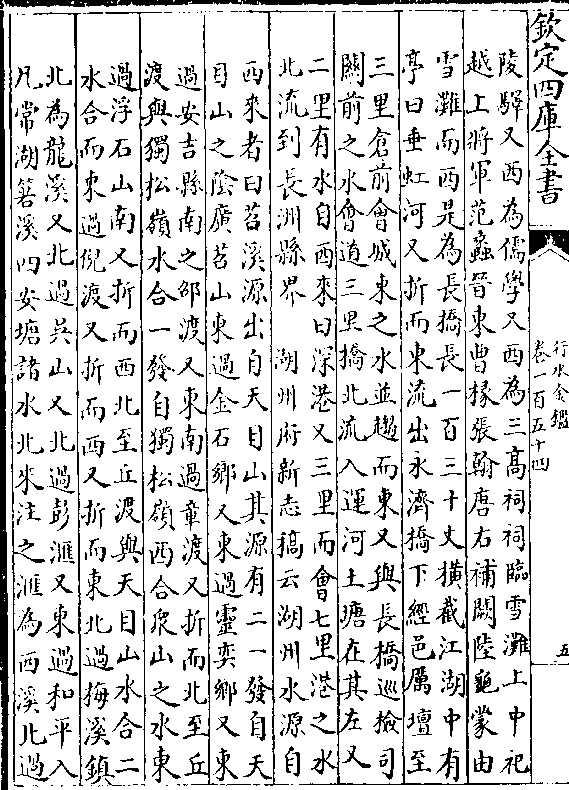 欽定四庫全書
行水金鑑
卷一百五十四
五
陵驛又西為儒學又西為三高祠祠臨雪灘上中祀
越上將軍范蠡晉東曹掾張翰唐右補闕陸龜蒙由
雪灘而西是為長橋長一百三十丈橫截江湖中有
亭曰垂虹河又折而東流出永濟橋下經邑厲壇至
三里倉前會城東之水並趨而東又與長橋巡檢司
關前之水會道三里橋北流入運河土塘在其左又
二里有水自西來曰深港又三里而會七里港之水
北流到長洲縣界　湖州府新志稿云湖州水源自
西來者曰苕溪源出自天目山其源有二一發自天
目山之陰廣苕山東過金石鄉又東過靈奕鄉又東
過安吉縣南之邱渡又東南過章渡又折而北至丘
渡與獨松嶺水合一發自獨松嶺西合衆山之水東
過浮石山南又折而西北至丘渡與天目山水合二
水合而東過倪渡又折而西又折而東北過梅溪鎮
北為龍溪又北過吳山又北過彭滙又東過和平入
凡常湖箬溪四安塘諸水北來注之滙為西溪北過